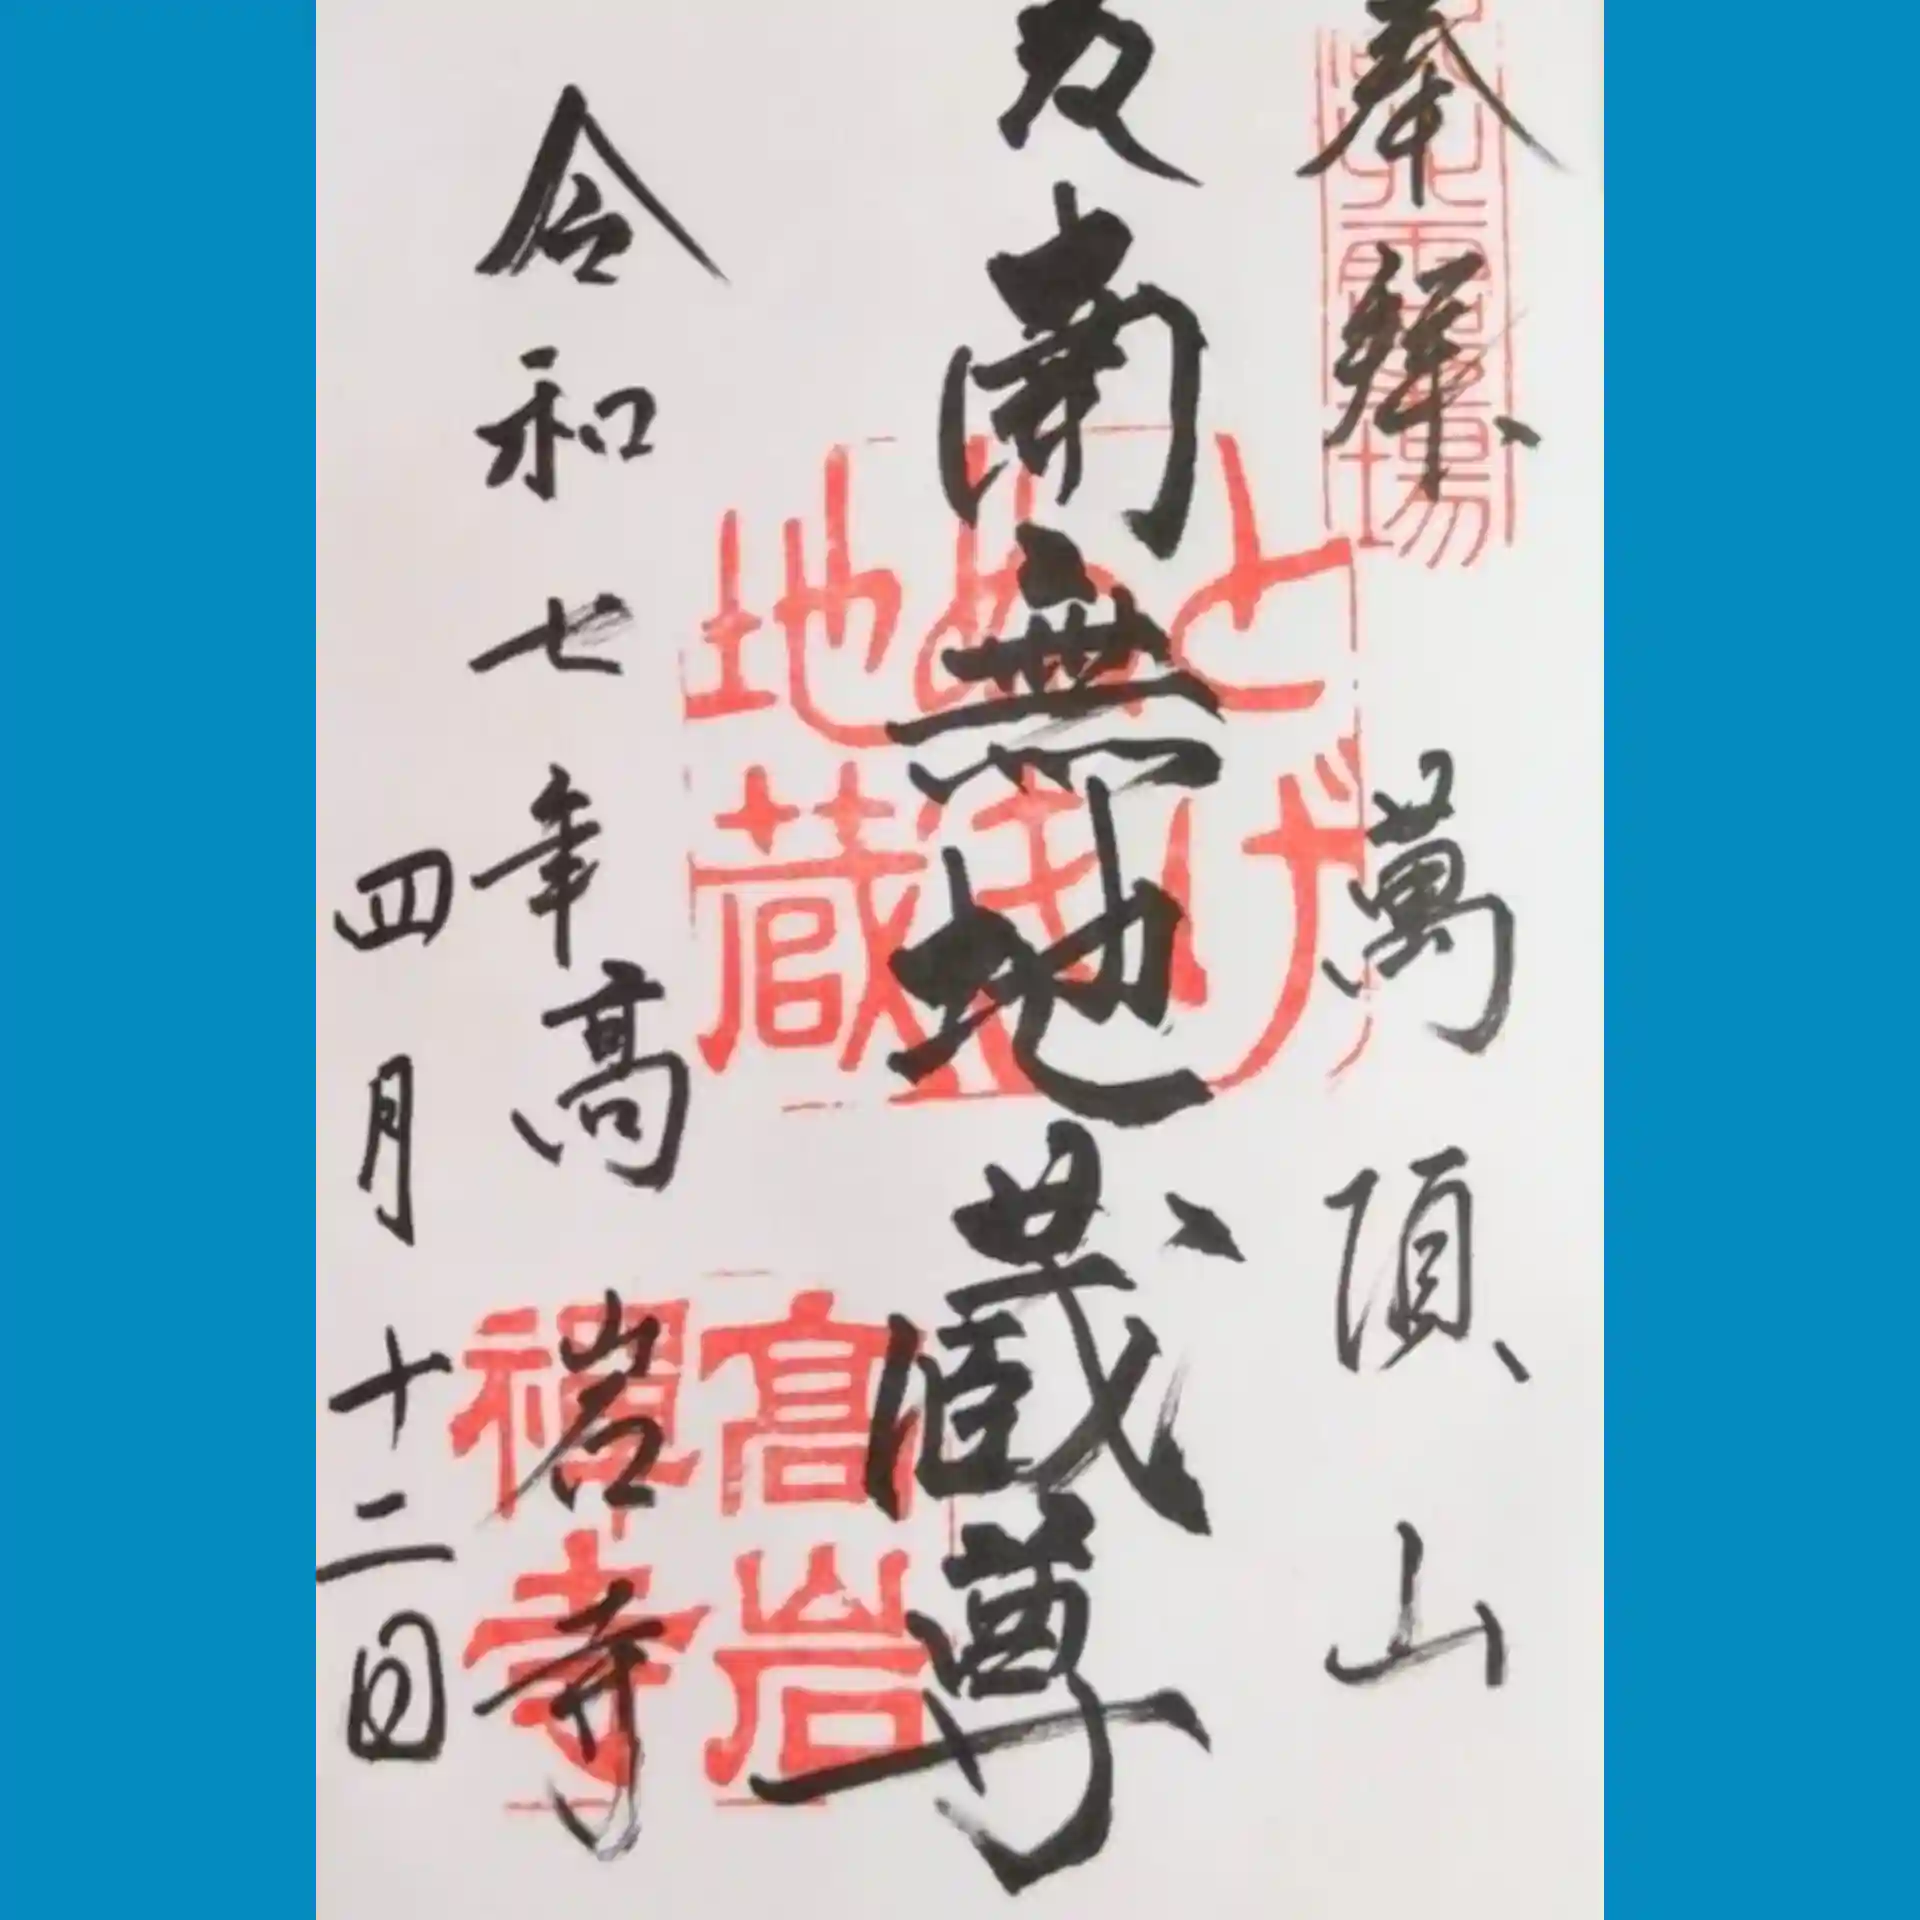 奉拜
萬頂山
南無地蔵尊
令和七年
高岩寺
四月十二日
とげ
ぬき
地蔵
高岩
禪寺